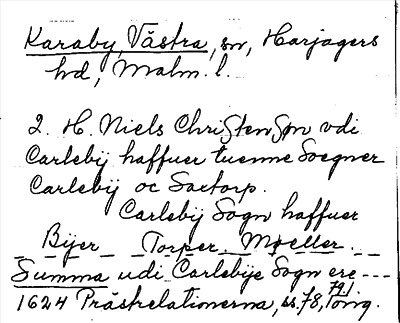 Karaby, Västra, sn, Harjagers
hd, Malm. l.
2. H. Niels Christensøn vdi
Carlebij haffuer tuenne Soegner
Carlebij oc Saxtorp.
Carlebij Sogn haffuer
Bijer Torper. Moeller.
Summa udi Carlebije Sogn ere ---
1624 Prästrelationerna, ss. 78, 79.